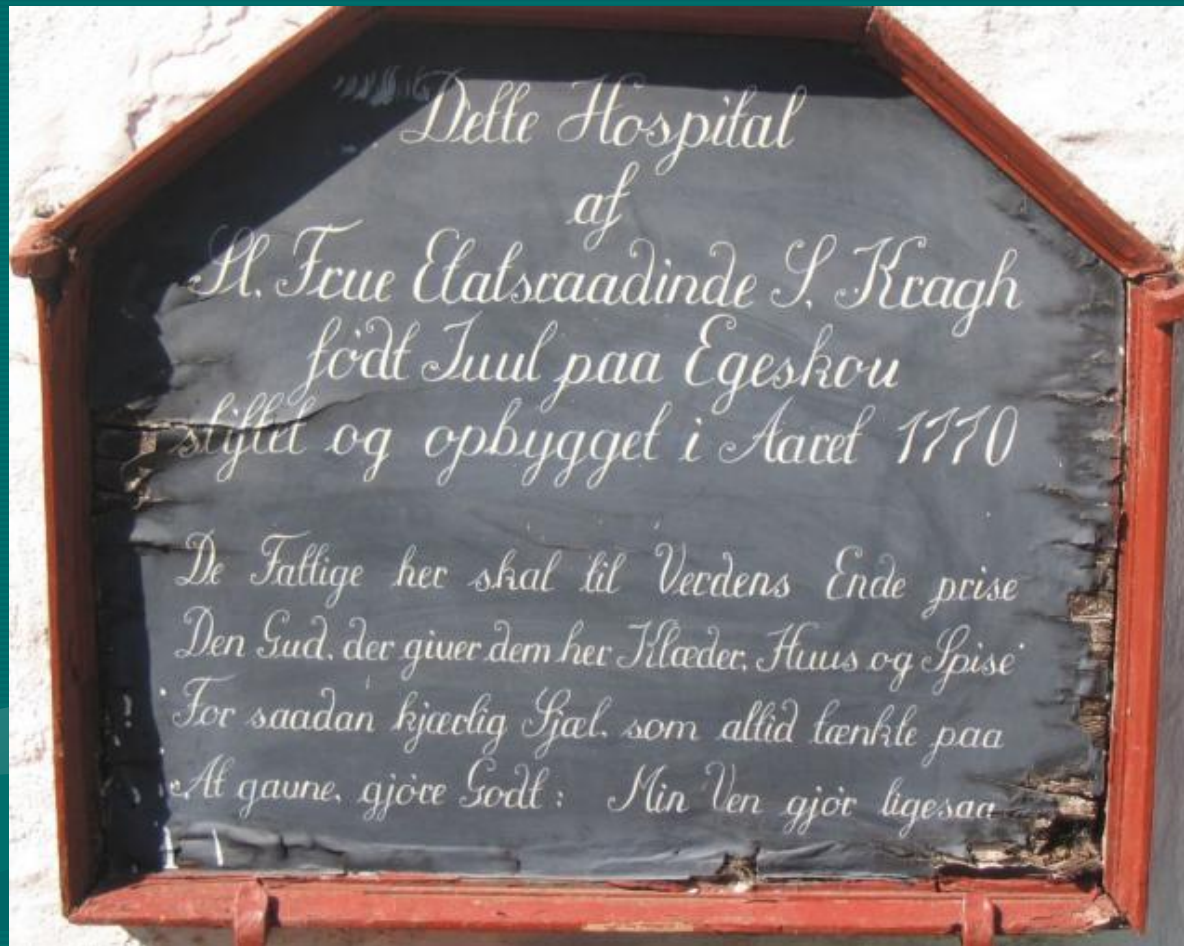 Dette Hospital
af
Sl. Frue Etatsraadinde S. Kragh
født Juul paa Egeskou
stiftet og opbygget i Aaret 1770
De Fattige her skal til Verdens Ende prise
Den Gud, der giver dem her Klæder, Huus og Spise
For saadan kjærlig Sjæl, som altid tænkte paa
At gavne, gjöre Godt: Min Ven gjör ligesaa